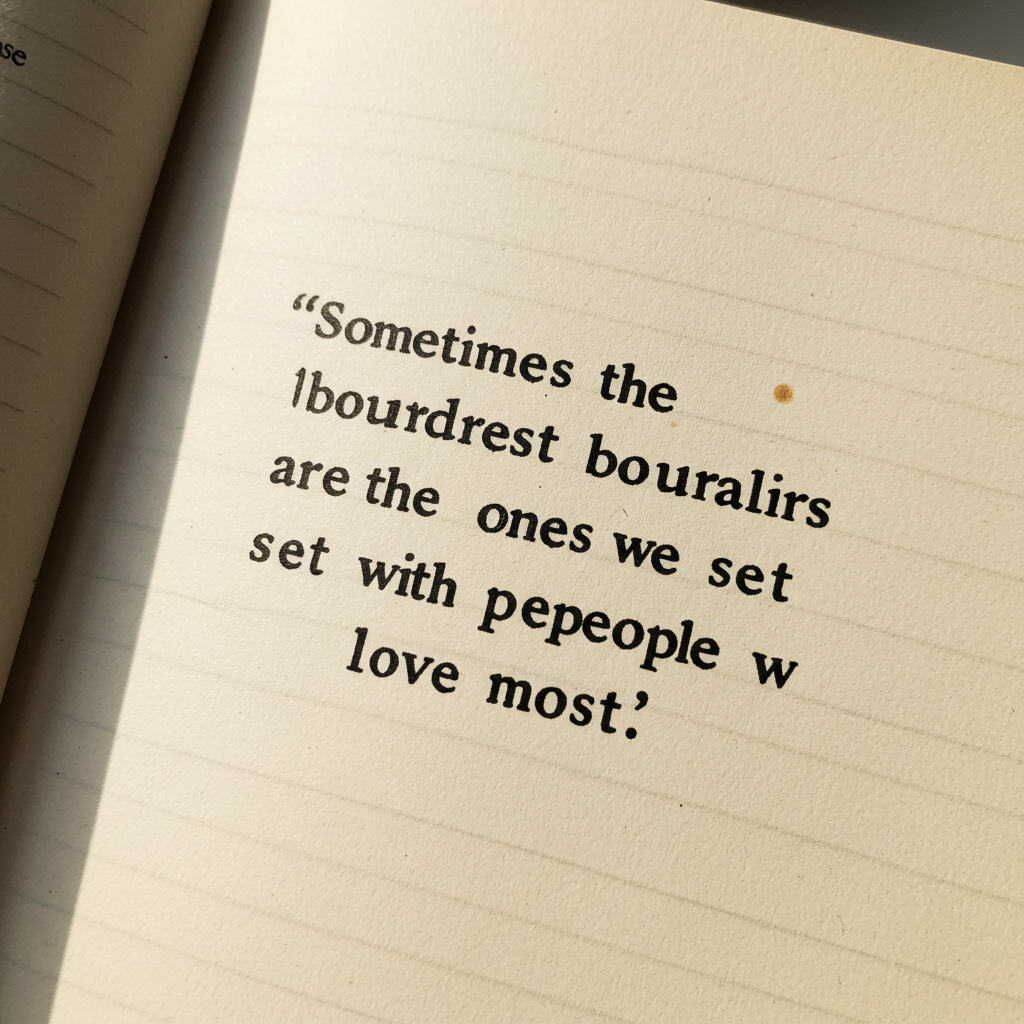 se
“Sometimes the
lbourdrest bouralirs
are the ones we set
set with pepeople w
love most.’